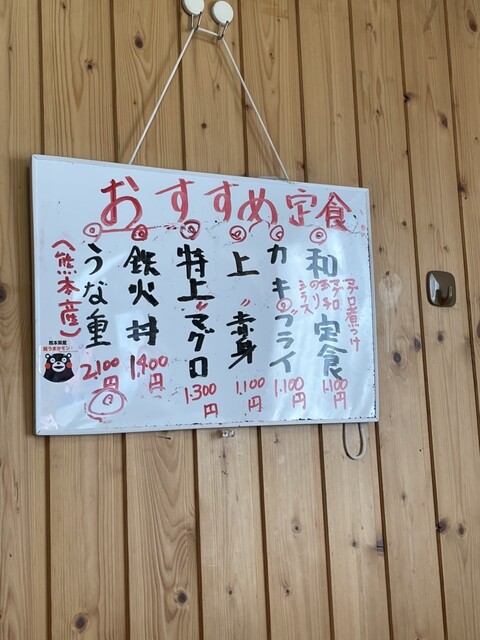 おすすめ定食
和定食
マグロ煮つけ
マグロ
のり
シラス
1,100円
カキフライ
1,100円
上〃赤身
1,100円
特上〃マグロ
1,300円
鉄火丼
1,400円
うな重
(熊本産)
2,100円
熊本県産